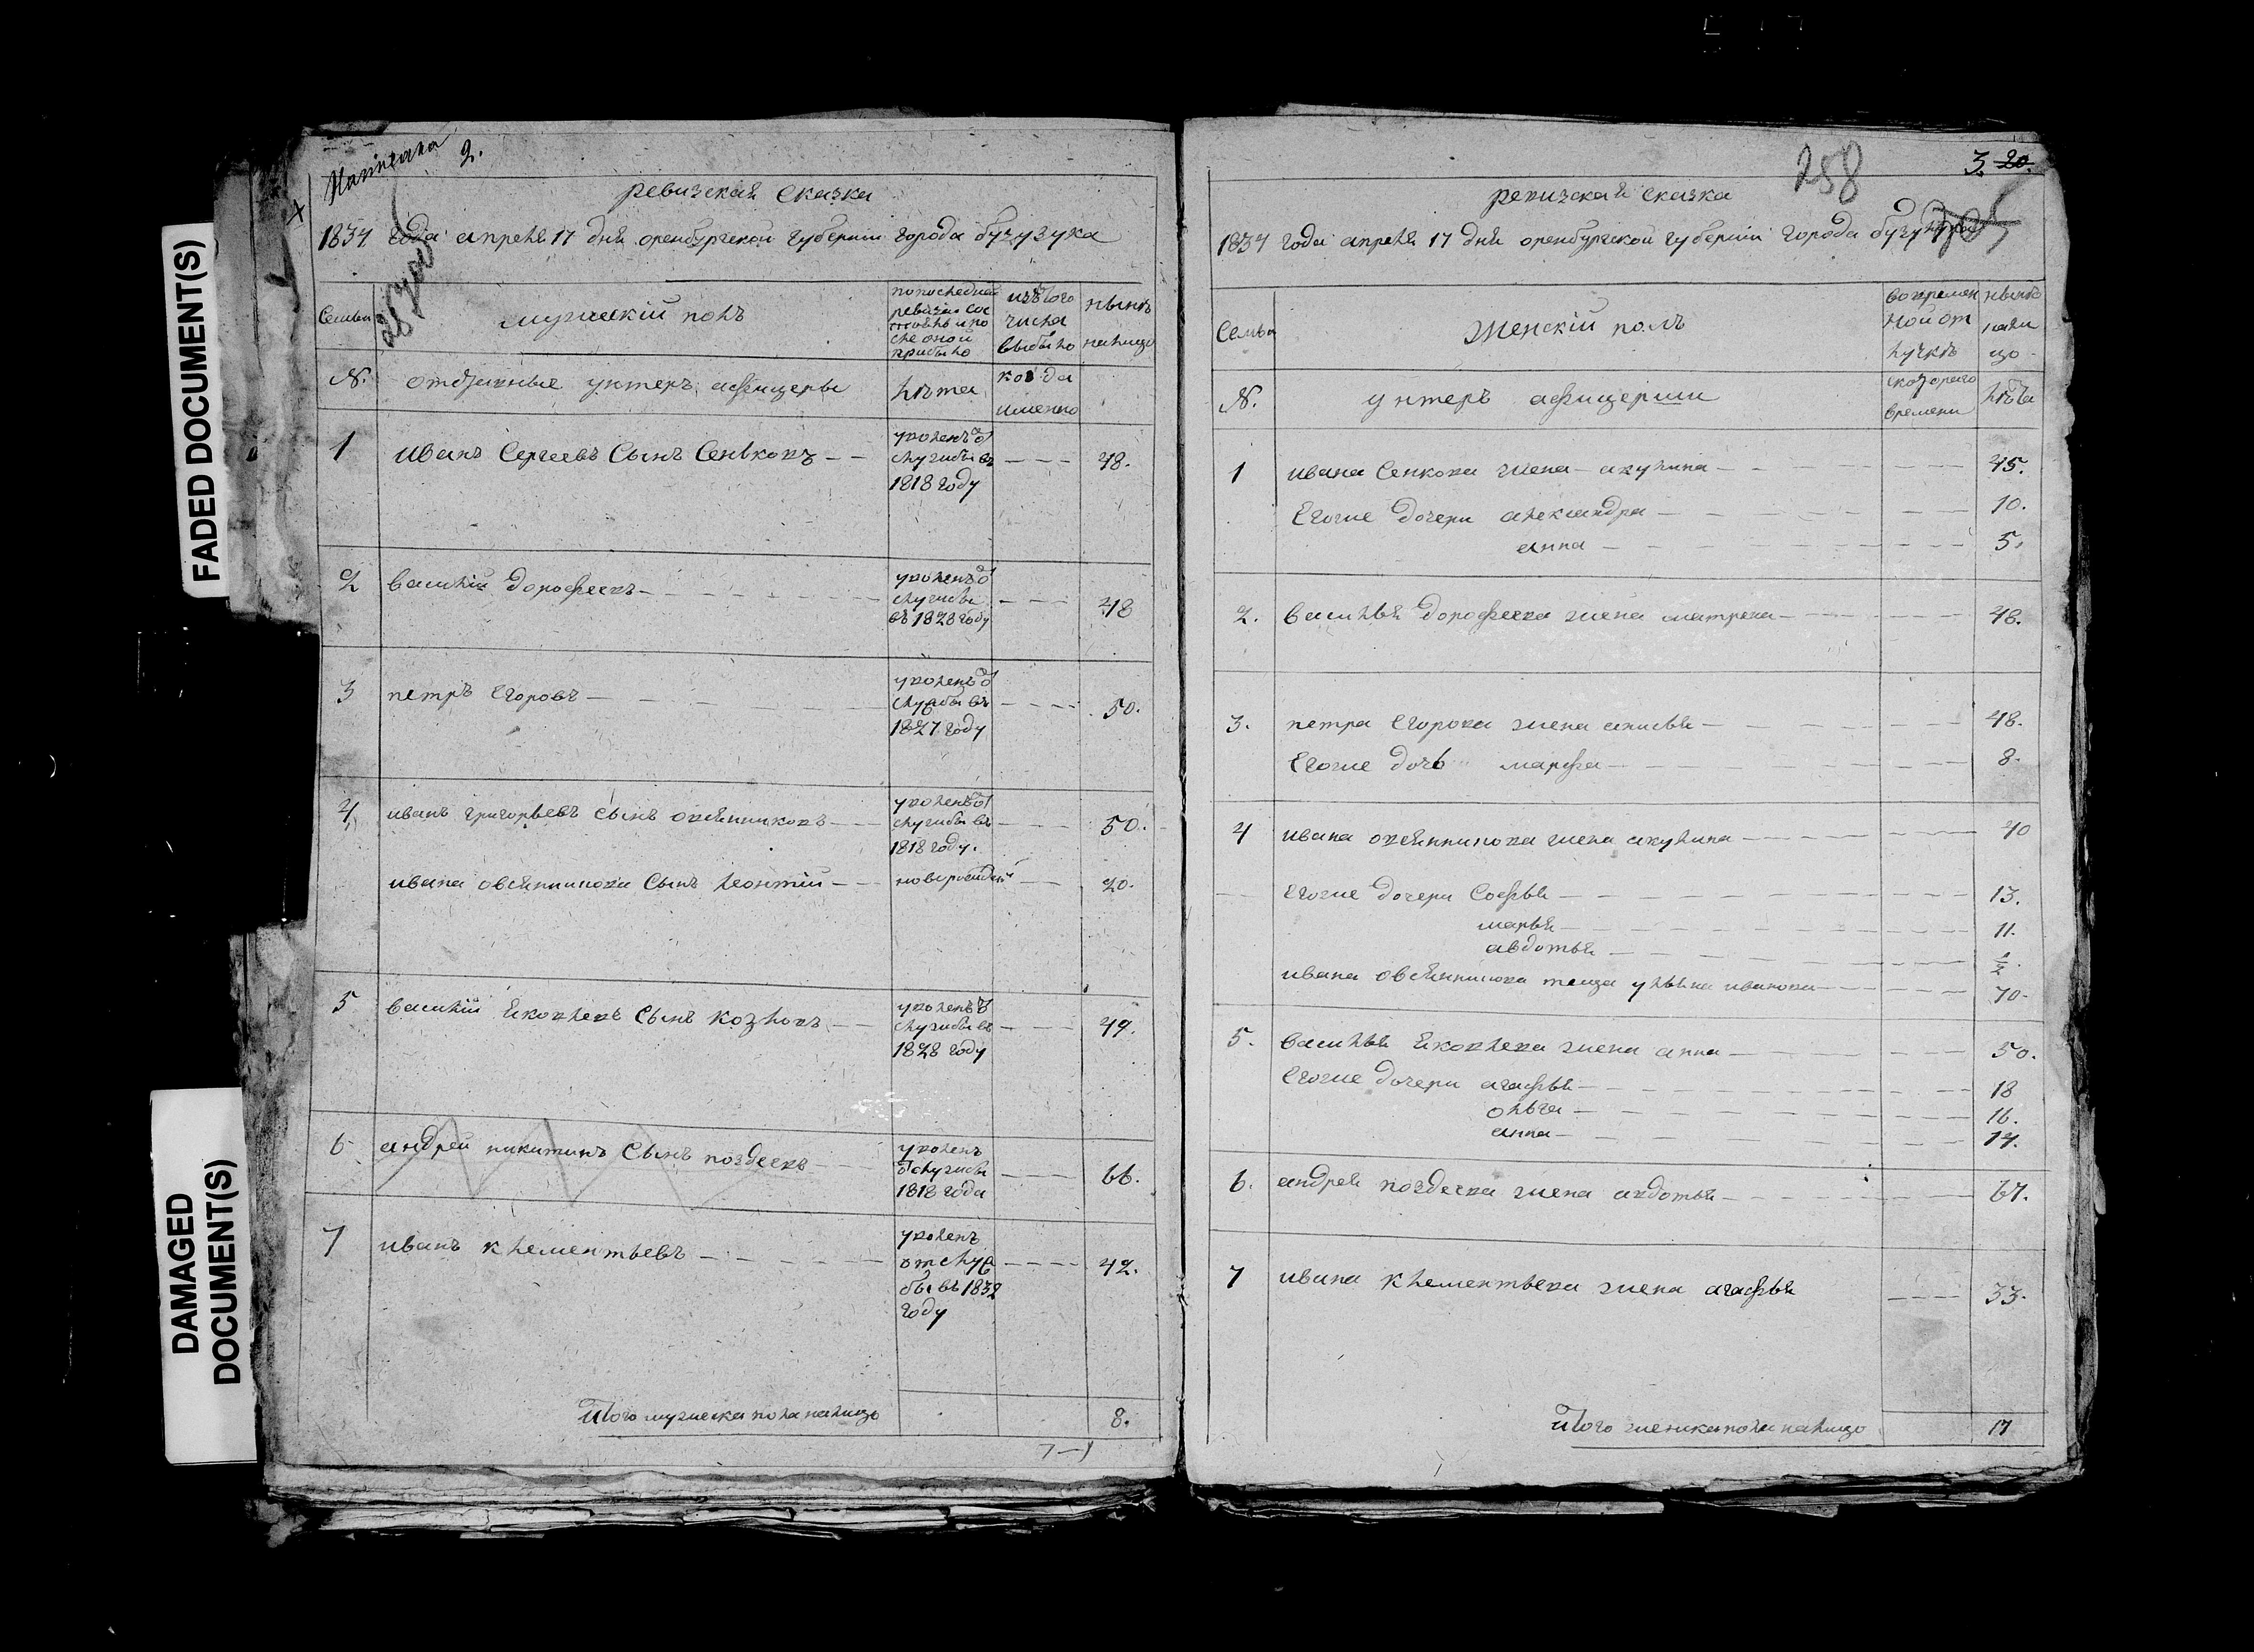 FADED DOCUMENT(S)
DAMAGED
DOCUMENT(S)
2.
ревизская сказка
1834 года апреля 17 дня оренбургской губернии города бузулука
Семьи
мужескій полъ
по последней
ревизіи сос
тояло и по
сле оной
прибыло
изъ того
числа
выбыло
ныне
налицо
№.
отставные унтеръ афицеры
лѣта
когда
именно
1 Иванъ Сергеевъ Сынъ Сенковъ
уволенъ от
службы въ
1818 году
48.
2 василій дорофеевъ
уволенъ от
службы
въ 1828 году
48
3 петръ Егоровъ
уволенъ от
службы въ
1827 году
50.
4 иванъ григорьевъ сынъ овсянниковъ
уволенъ от
службы въ
1818 году.
50.
ивана овсянникова Сынъ леонтій
новорожден
20.
5 василій яковлевъ Сынъ козловъ
уволенъ от
службы въ
1828 году
49.
6 андрей никитинъ Сынъ поздеевъ
уволенъ
от службы
1818 года
66.
7 иванъ клементьевъ
уволенъ
от служ
бы въ 1832
году
42.
Итого мужеска пола налицо 8.
7-1
258
3. 20.
ревизская сказка
1834 года апреля 17 дня оренбургской губерніи города
Семьи
Женскій полъ
во времен
ной от
лучкѣ
нынѣ
нали
цо
№.
унтеръ афицерши
с котораго
времени
лѣта
1 ивана Сенкова жена акулина 45.
Егоже дочери александра 10.
анна 5.
2. василья дорофеева жена матрена 48.
3. петра Егорова жена анисья 48.
Егоже дочь марфа 8.
4 ивана овсянникова жена акулина 40
Егоже дочери Софья 13.
марья 11.
авдотья ½.
ивана овсянникова теща ульяна иванова 70.
5. василья яковлева жена анна 50.
Егоже дочери агафья 18
ольга 16.
анна 14.
6. андрея поздеева жена авдотья 67.
7 ивана клементьева жена агафья 33.
Итого женска пола налицо 17